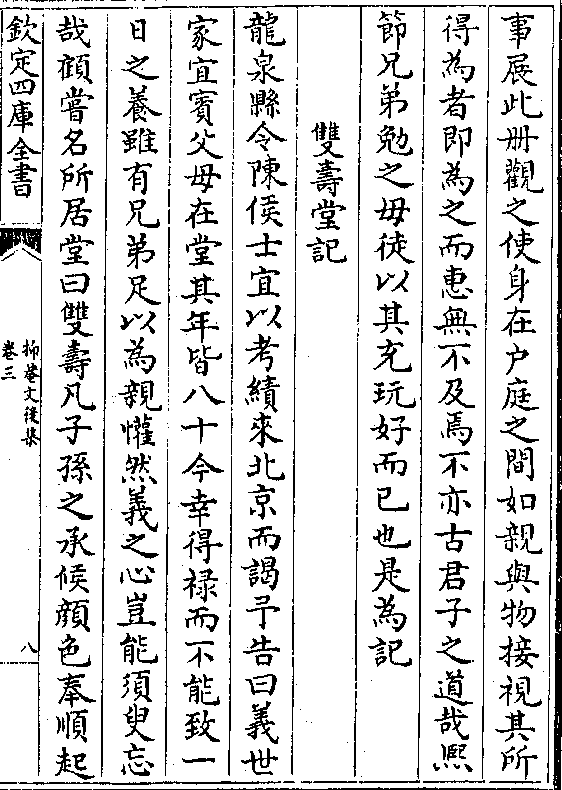 事展此册觀之使身在户庭之間如親與物接視其所
得為者即為之而惠無不及焉不亦古君子之道哉熈
節兄弟勉之毋徒以其充玩好而已也是為記
雙壽堂記
龍泉縣令陳侯士宜以考績來北京而謁予告曰義世
家宜賓父母在堂其年皆八十今幸得禄而不能致一
日之養雖有兄弟足以為親懽然義之心豈能須臾忘
哉顧嘗名所居堂曰雙壽凡子孫之承候顔色奉順起
欽定四庫全書
抑菴文後集
卷三
八